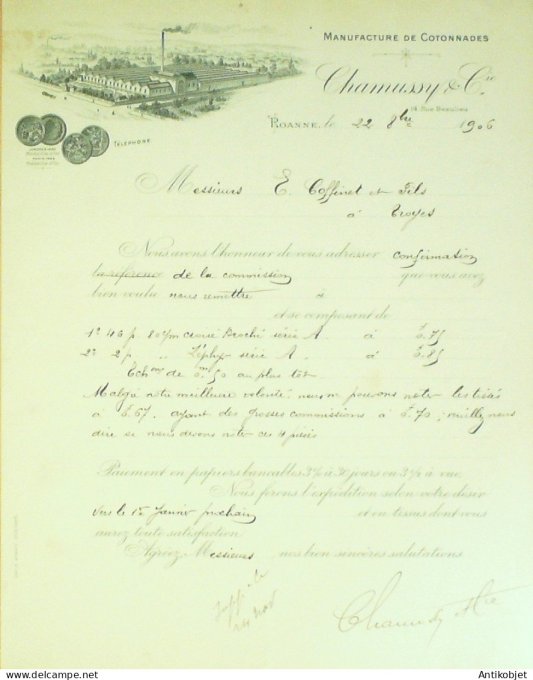 MANUFACTURE DE COTONNADES
Chamussy & Cie
14 Rue Beaulieu
ROANNE, le 22 8bre 1906
TÉLÉPHONE
Messieurs E. Coffinet et Fils
à Troyes
Nous avons l'honneur de vous adresser confirmation
la référence de la commission que vous avez
bien voulu nous remettre à
et se composant de
1° 46 p 80c/m croisé Broché série A à 0.75
2° 2 p " Zéphyr série A à 0.85
Ech on de 0m50 au plus tôt
Malgré notre meilleure volonté nous ne pouvons noter les tissés
à 0.67, ayant des grosses commissions à 0.70; veuillez nous
dire si nous devons noter ces 4 pièces
Paiement en papiers bancables 3% à 30 jours ou 3½% à vue.
Nous ferons l'expédition selon votre désir
vers le 15 Janvier prochain et en tissus dont vous
aurez toute satisfaction.
Agréez Messieurs nos bien sincères salutations
Chamussy & Cie
www.antikobjet.com
Antikobjet